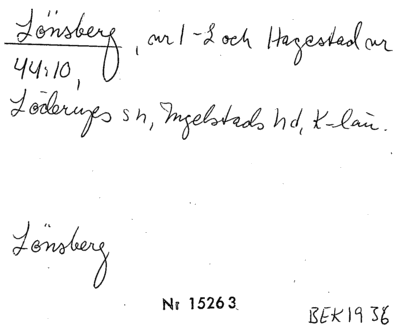 Lönsberg, nr 1-2 och Hagestad nr
44:10,
Löderups sn, Ingelstads hd, K-län.
Lönsberg
Nr 15263
BEK 1936